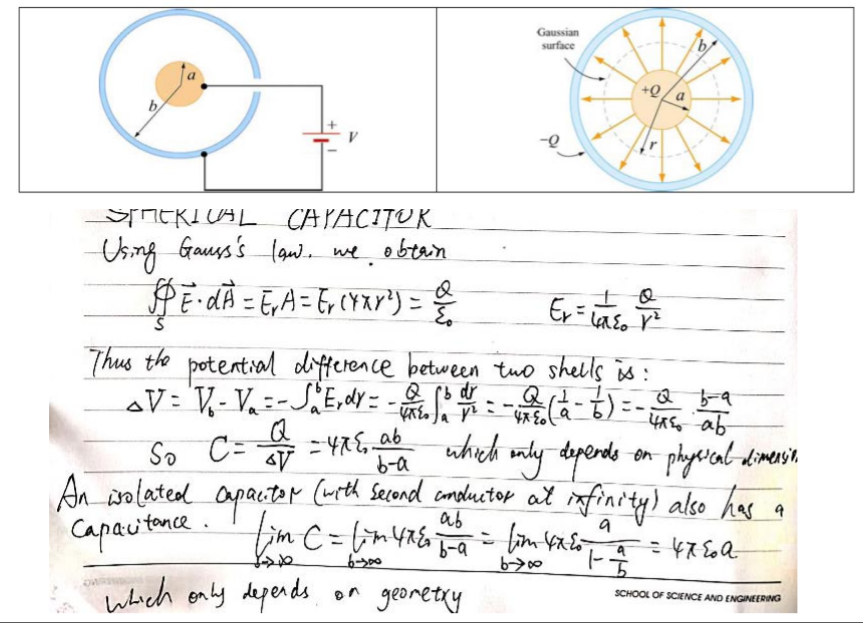 a
b
+
V
−
Gaussian
surface
b
+Q
a
−Q
r
SPHERICAL CAPACITOR
Using Gauss's law, we obtain
∯_S E⃗·dA⃗ = E_r A = E_r (4πr²) = Q/ε₀    E_r = 1/4πε₀ Q/r²
Thus the potential difference between two shells is:
△V = V_b - V_a = -∫_a^b E_r dr = -Q/4πε₀ ∫_a^b dr/r² = -Q/4πε₀ (1/a - 1/b) = -Q/4πε₀ · b-a/ab
So C = Q/△V = 4πε₀ ab/b-a which only depends on physical dimension
An isolated capacitor (with second conductor at infinity) also has a
capacitance. lim_{b→∞} C = lim_{b→∞} 4πε₀ ab/b-a = lim_{b→∞} 4πε₀ a/1-a/b = 4πε₀a
which only depends on geometry
SCHOOL OF SCIENCE AND ENGINEERING